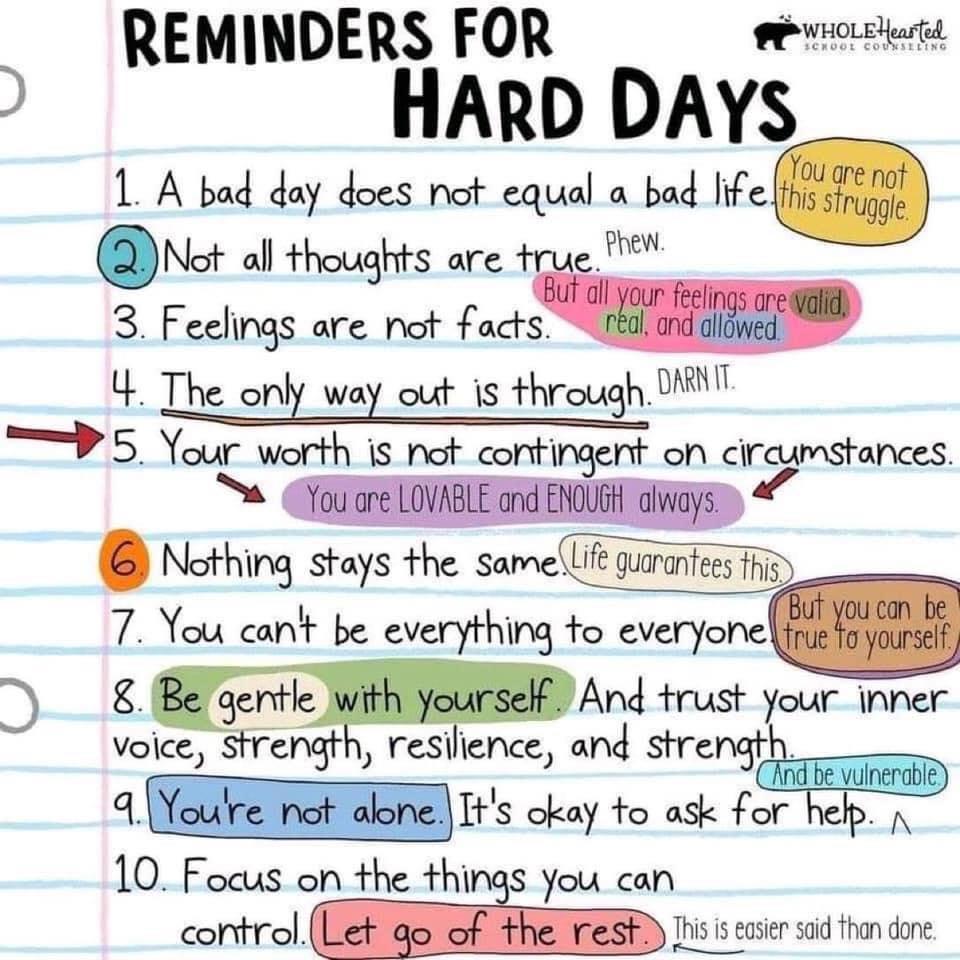 REMINDERS FOR
HARD DAYS
WHOLEHearted
SCHOOL COUNSELING
1. A bad day does not equal a bad life.
You are not
this struggle.
2. Not all thoughts are true. Phew.
3. Feelings are not facts.
But all your feelings are valid,
real, and allowed.
4. The only way out is through. DARN IT.
5. Your worth is not contingent on circumstances.
You are LOVABLE and ENOUGH always.
6. Nothing stays the same. Life guarantees this.
7. You can't be everything to everyone.
But you can be
true to yourself.
8. Be gentle with yourself. And trust your inner
voice, strength, resilience, and strength.
9. You're not alone. It's okay to ask for help.
And be vulnerable.
10. Focus on the things you can
control. Let go of the rest. This is easier said than done.